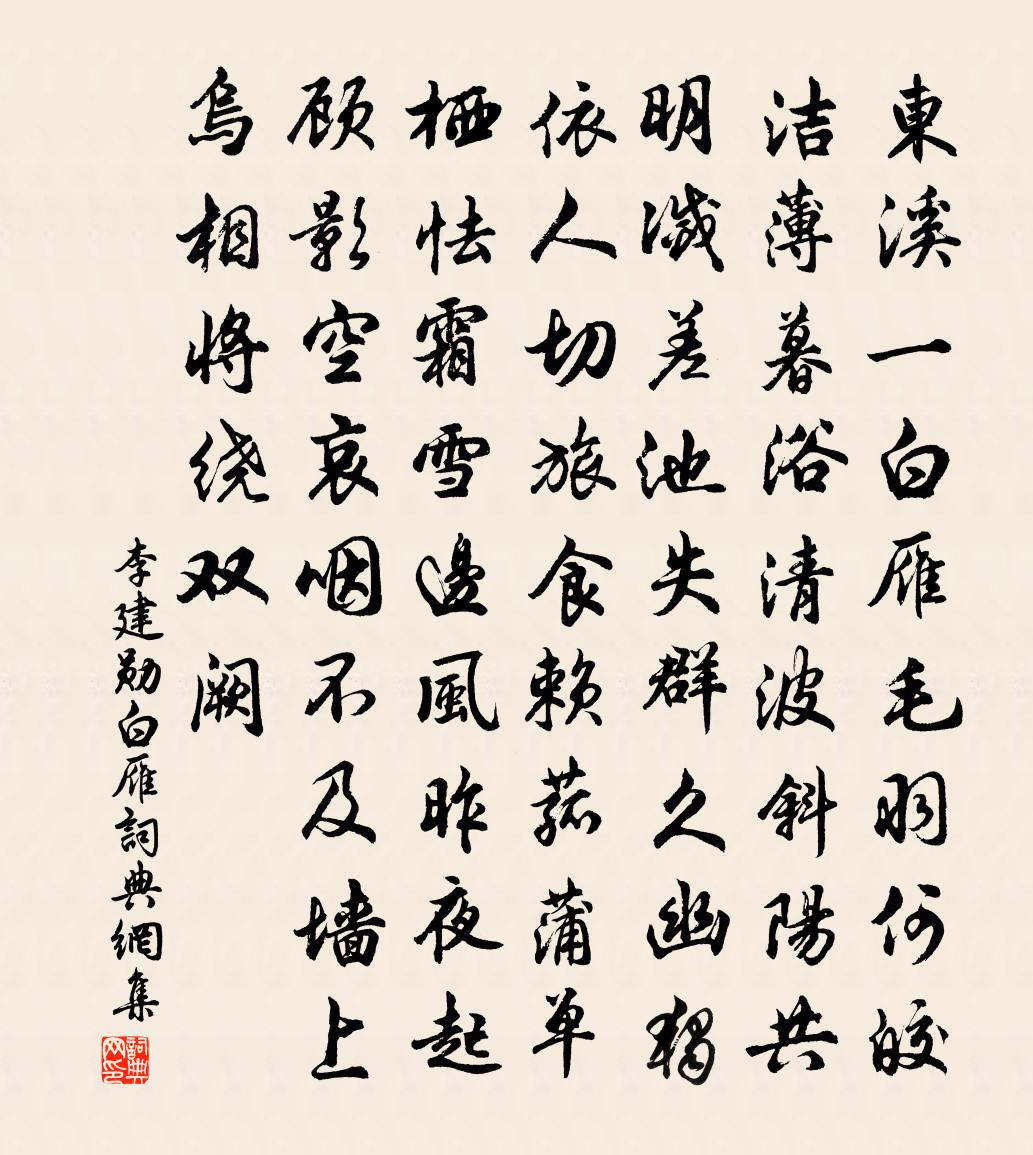 東溪一白雁毛羽何皎
洁薄暮浴清波斜陽共
明滅差池失群久幽獨
依人切旅食赖菰蒲单
栖怯霜雪邊風昨夜起
顾影空哀咽不及墙上
烏相将绕双阙
李建勋白雁詞典網集
詞典网印